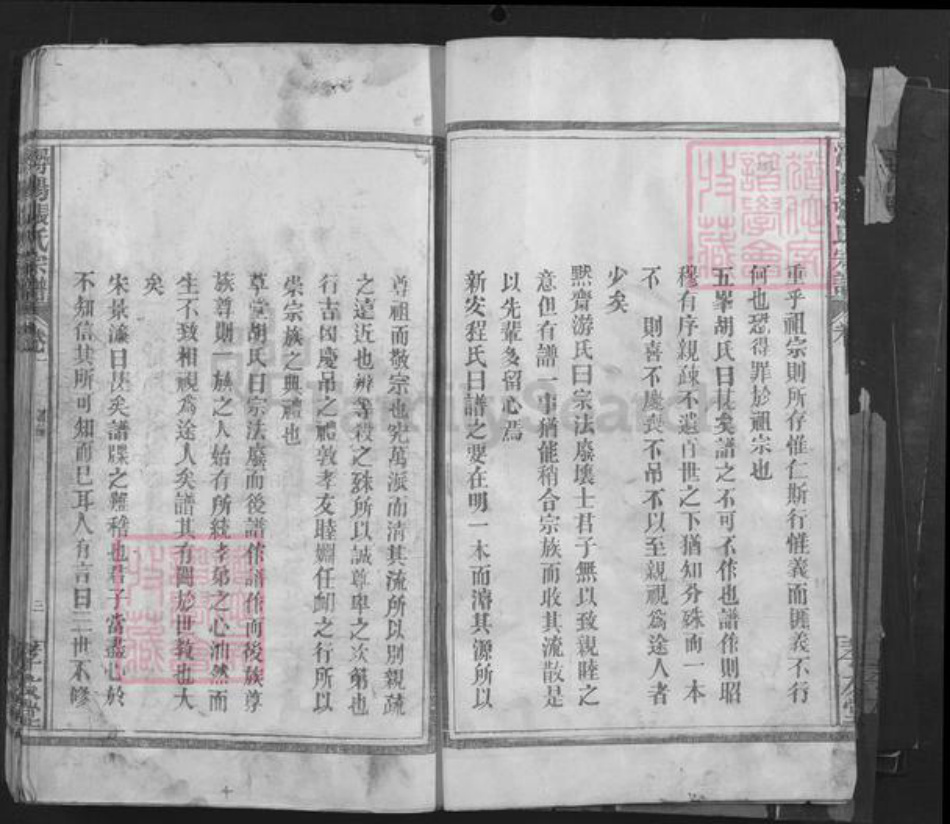 重乎祖宗則所存惟仁斯行惟義而匪義不行
何也恐得罪於祖宗也
五峯胡氏曰甚矣譜之不可不作也譜作則昭
穆有序親疎不遺百世之下猶知分殊而一本
不 則喜不慶喪不吊不以至親視為途人者
少矣
默齋游氏曰宗法廢壞士君子無以致親睦之
意但有譜一事猶能稍合宗族而收其流散是
以先輩多留心焉
新安程氏曰譜之要在明一本而濬其源所以
尊祖而敬宗也究萬派而清其流所以別親疏
之遠近也辨等殺之殊所以誠尊卑之次第也
行吉凶慶吊之禮敦孝友睦婣任卹之行所以
崇宗族之典禮也
草堂胡氏曰宗法廢而後譜作譜作而後族尊
族尊則一族之人始有所統孝弟之心油然而
生不致相視為途人矣譜其有關於世教也大
矣
宋景濂曰甚矣譜牒之難稽也君子當盡心於
不知信其所可知而已耳人有言曰三世不修
張氏宗譜
三
譜學會
收藏
FamilySearch